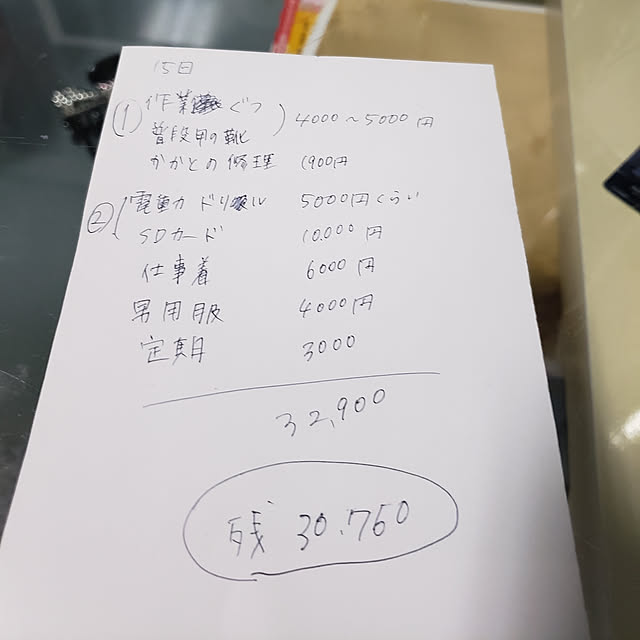 15日
① 作業ぐつ
普段用の靴 ) 4000～5000円
かかとの修理 1900円
② 電動カドリル 5000円くらい
SDカード 10.000円
仕事着 6000円
男用服 4000円
定期 3000
32,900
残 30.760